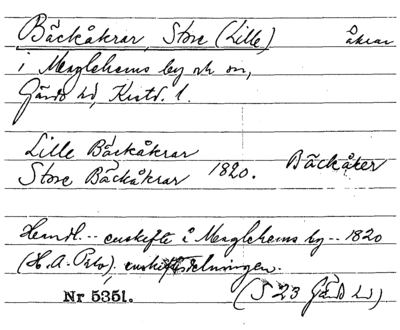 Bäckåkrar, Store (Lille) åkrar
i Maglehems by och sn,
Gärds hd, Kristd. l.
Lille Bäckåkrar
Store Bäckåkrar 1820. Bäckåker
Handl. -- enskifte å Maglehems by -- 1820
(H. A. ) enskiftesdelningen.
Nr 5351. (S 23 Gärds hd)